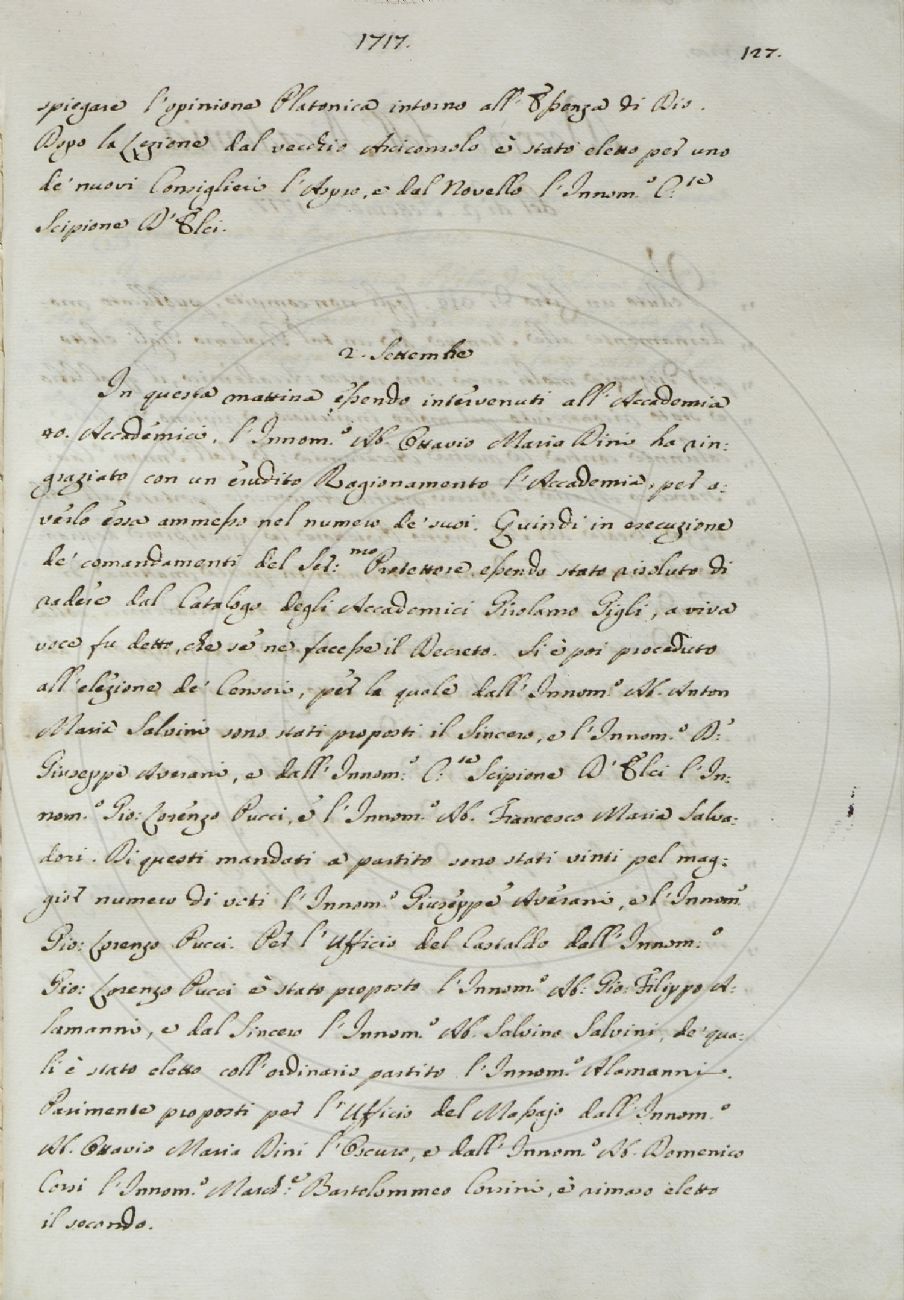 1717.
127.
spiegare l'opinione Platonica intorno all'Essenza di Dio.
Dopo la Lezione dal vecchio Arciconsolo è stato eletto per uno
de' nuovi Consiglieri l'Aspro, e dal Novello l'Innom.º C.te
Scipione D'Elci.
2. Settembre
In questa mattina essendo intervenuti all'Accademia
Accademici, l'Innom.º Ab. Ottavio Maria Dini ha rin:
graziato con un erudito Ragionamento l'Accademia, per a:
verlo essa ammesso nel numero de' suoi. Quindi in esecuzione
de' comandamenti del Ser:mo Protettore essendo stato risoluto di
radere dal Catalogo degli Accademici Girolamo Gigli, a viva
voce fu detto, che se ne facesse il Decreto. Si è poi proceduto
all'elezione de' Censori, per la quale dall'Innom.º Ab. Anton
Maria Salvini sono stati proposti il Sincero, e l'Innom.º D.r
Giuseppe Averani, e dall'Innom.º C.te Scipione D'Elci l'In:
nom.º Gio: Lorenzo Pucci, e l'Innom.º Ab. Francesco Maria Salva:
dori. Di questi mandati a partito sono stati vinti pel mag:
gior numero di voti l'Innom.º Giuseppe Averani, e l'Innom.º
Gio: Lorenzo Pucci. Per l'Ufficio del Castaldo dall'Innom.º
Gio: Lorenzo Pucci è stato proposto l'Innom.º Ab: Gio: Filippo A:
lamanni, e dal Sincero l'Innom.º Ab. Salvino Salvini, de' qua:
li è stato eletto coll'ordinario partito l'Innom.º Alamanni.
Parimente proposti per l'Ufficio del Massajo dall'Innom.º
Ab. Ottavio Maria Dini l'Oscuro, e dall'Innom.º Ab. Domenico
Corsi l'Innom.º March.e Bartolommeo Corsini, è rimaso eletto
il secondo.